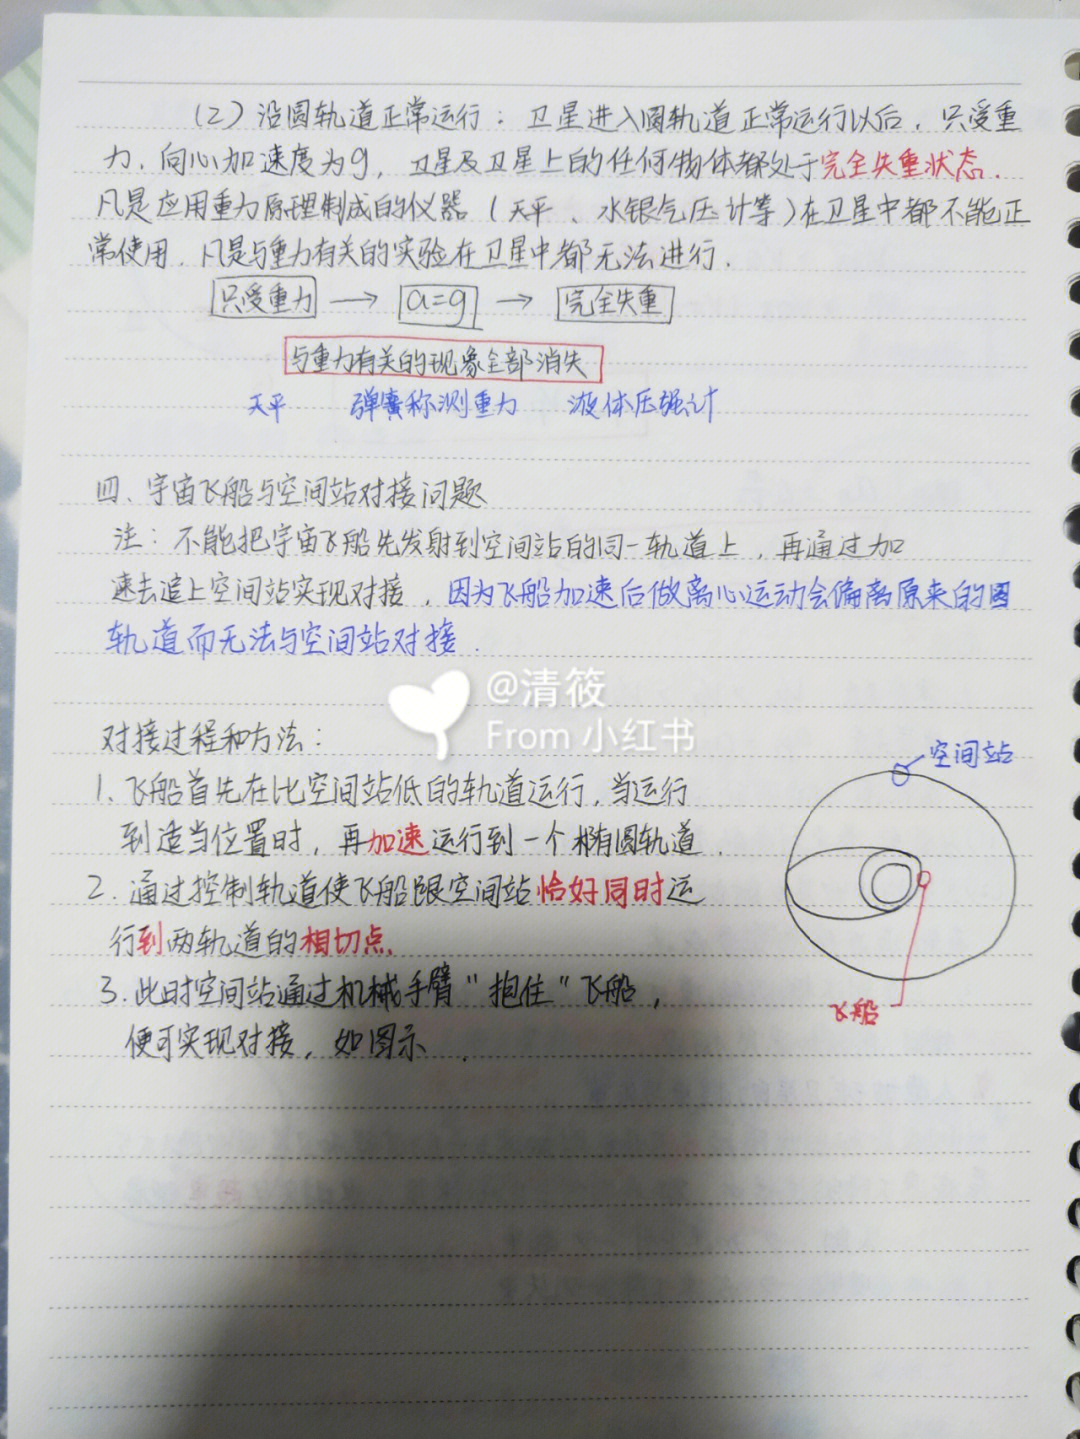 (2) 沿圆轨道正常运行：卫星进入圆轨道正常运行以后，只受重
力，向心加速度为g，卫星及卫星上的任何物体都处于完全失重状态.
凡是应用重力原理制成的仪器（天平、水银气压计等）在卫星中都不能正
常使用.凡是与重力有关的实验在卫星中都无法进行.
只受重力 → a=g → 完全失重
与重力有关的现象全部消失
天平 弹簧称测重力 液体压强计
四、宇宙飞船与空间站对接问题
注：不能把宇宙飞船先发射到空间站的同一轨道上，再通过加
速去追上空间站实现对接，因为飞船加速后做离心运动会偏离原来的圆
轨道而无法与空间站对接.
@清筱
From 小红书
对接过程和方法：
空间站
1、飞船首先在比空间站低的轨道运行，当运行
到适当位置时，再加速运行到一个椭圆轨道.
2.通过控制轨道使飞船跟空间站恰好同时运
行到两轨道的相切点.
3.此时空间站通过机械手臂"抱住"飞船，
飞船
便可实现对接，如图示.